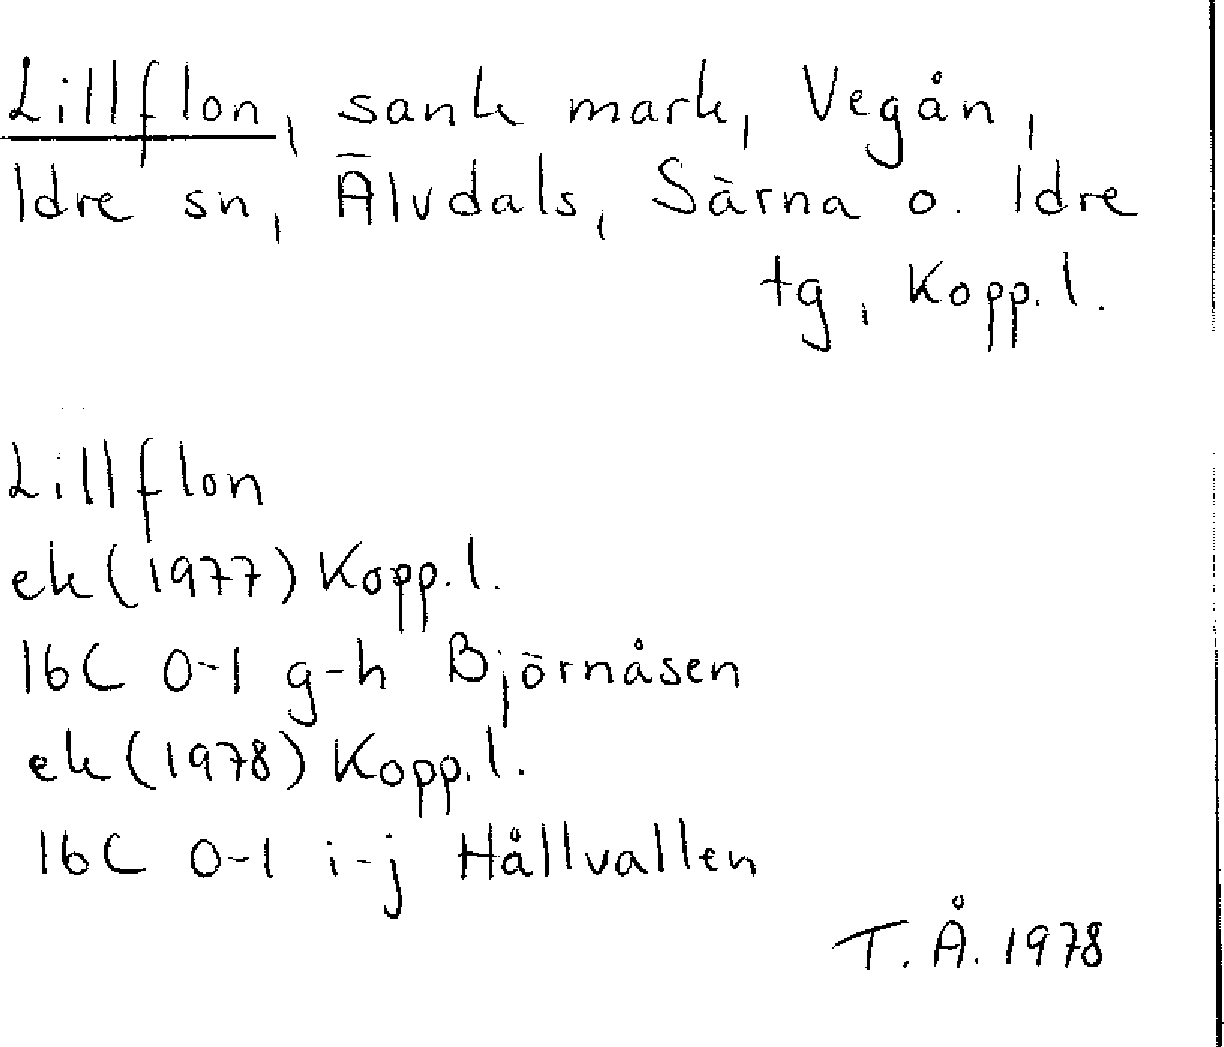 Lillflon, sank mark, Vegån,
Idre sn, Älvdals, Särna o. Idre
tg, Kopp. l.
Lillflon
ek (1977) Kopp. l.
16C 0-1 g-h Björnåsen
ek (1978) Kopp. l.
16C 0-1 i-j Hållvallen
T. Å. 1978